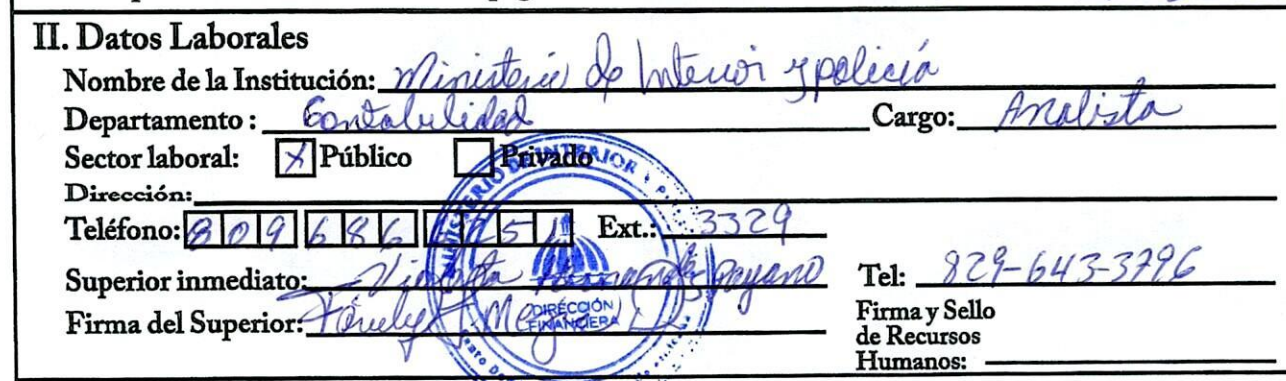 II. Datos Laborales
Nombre de la Institución: Ministerio de Interior y policía
Departamento : Contabilidad Cargo: Analista
Sector laborable: X Público Privado
Dirección:
Teléfono: 809 686 6251 Ext.: 3329
Superior inmediato: Hernandez Payano Tel: 829-643-3796
Firma del Superior:
Firma y Sello
de Recursos
Humanos:
MINISTERIO DE INTERIOR Y
DIRECCIÓN
FINANCIERA